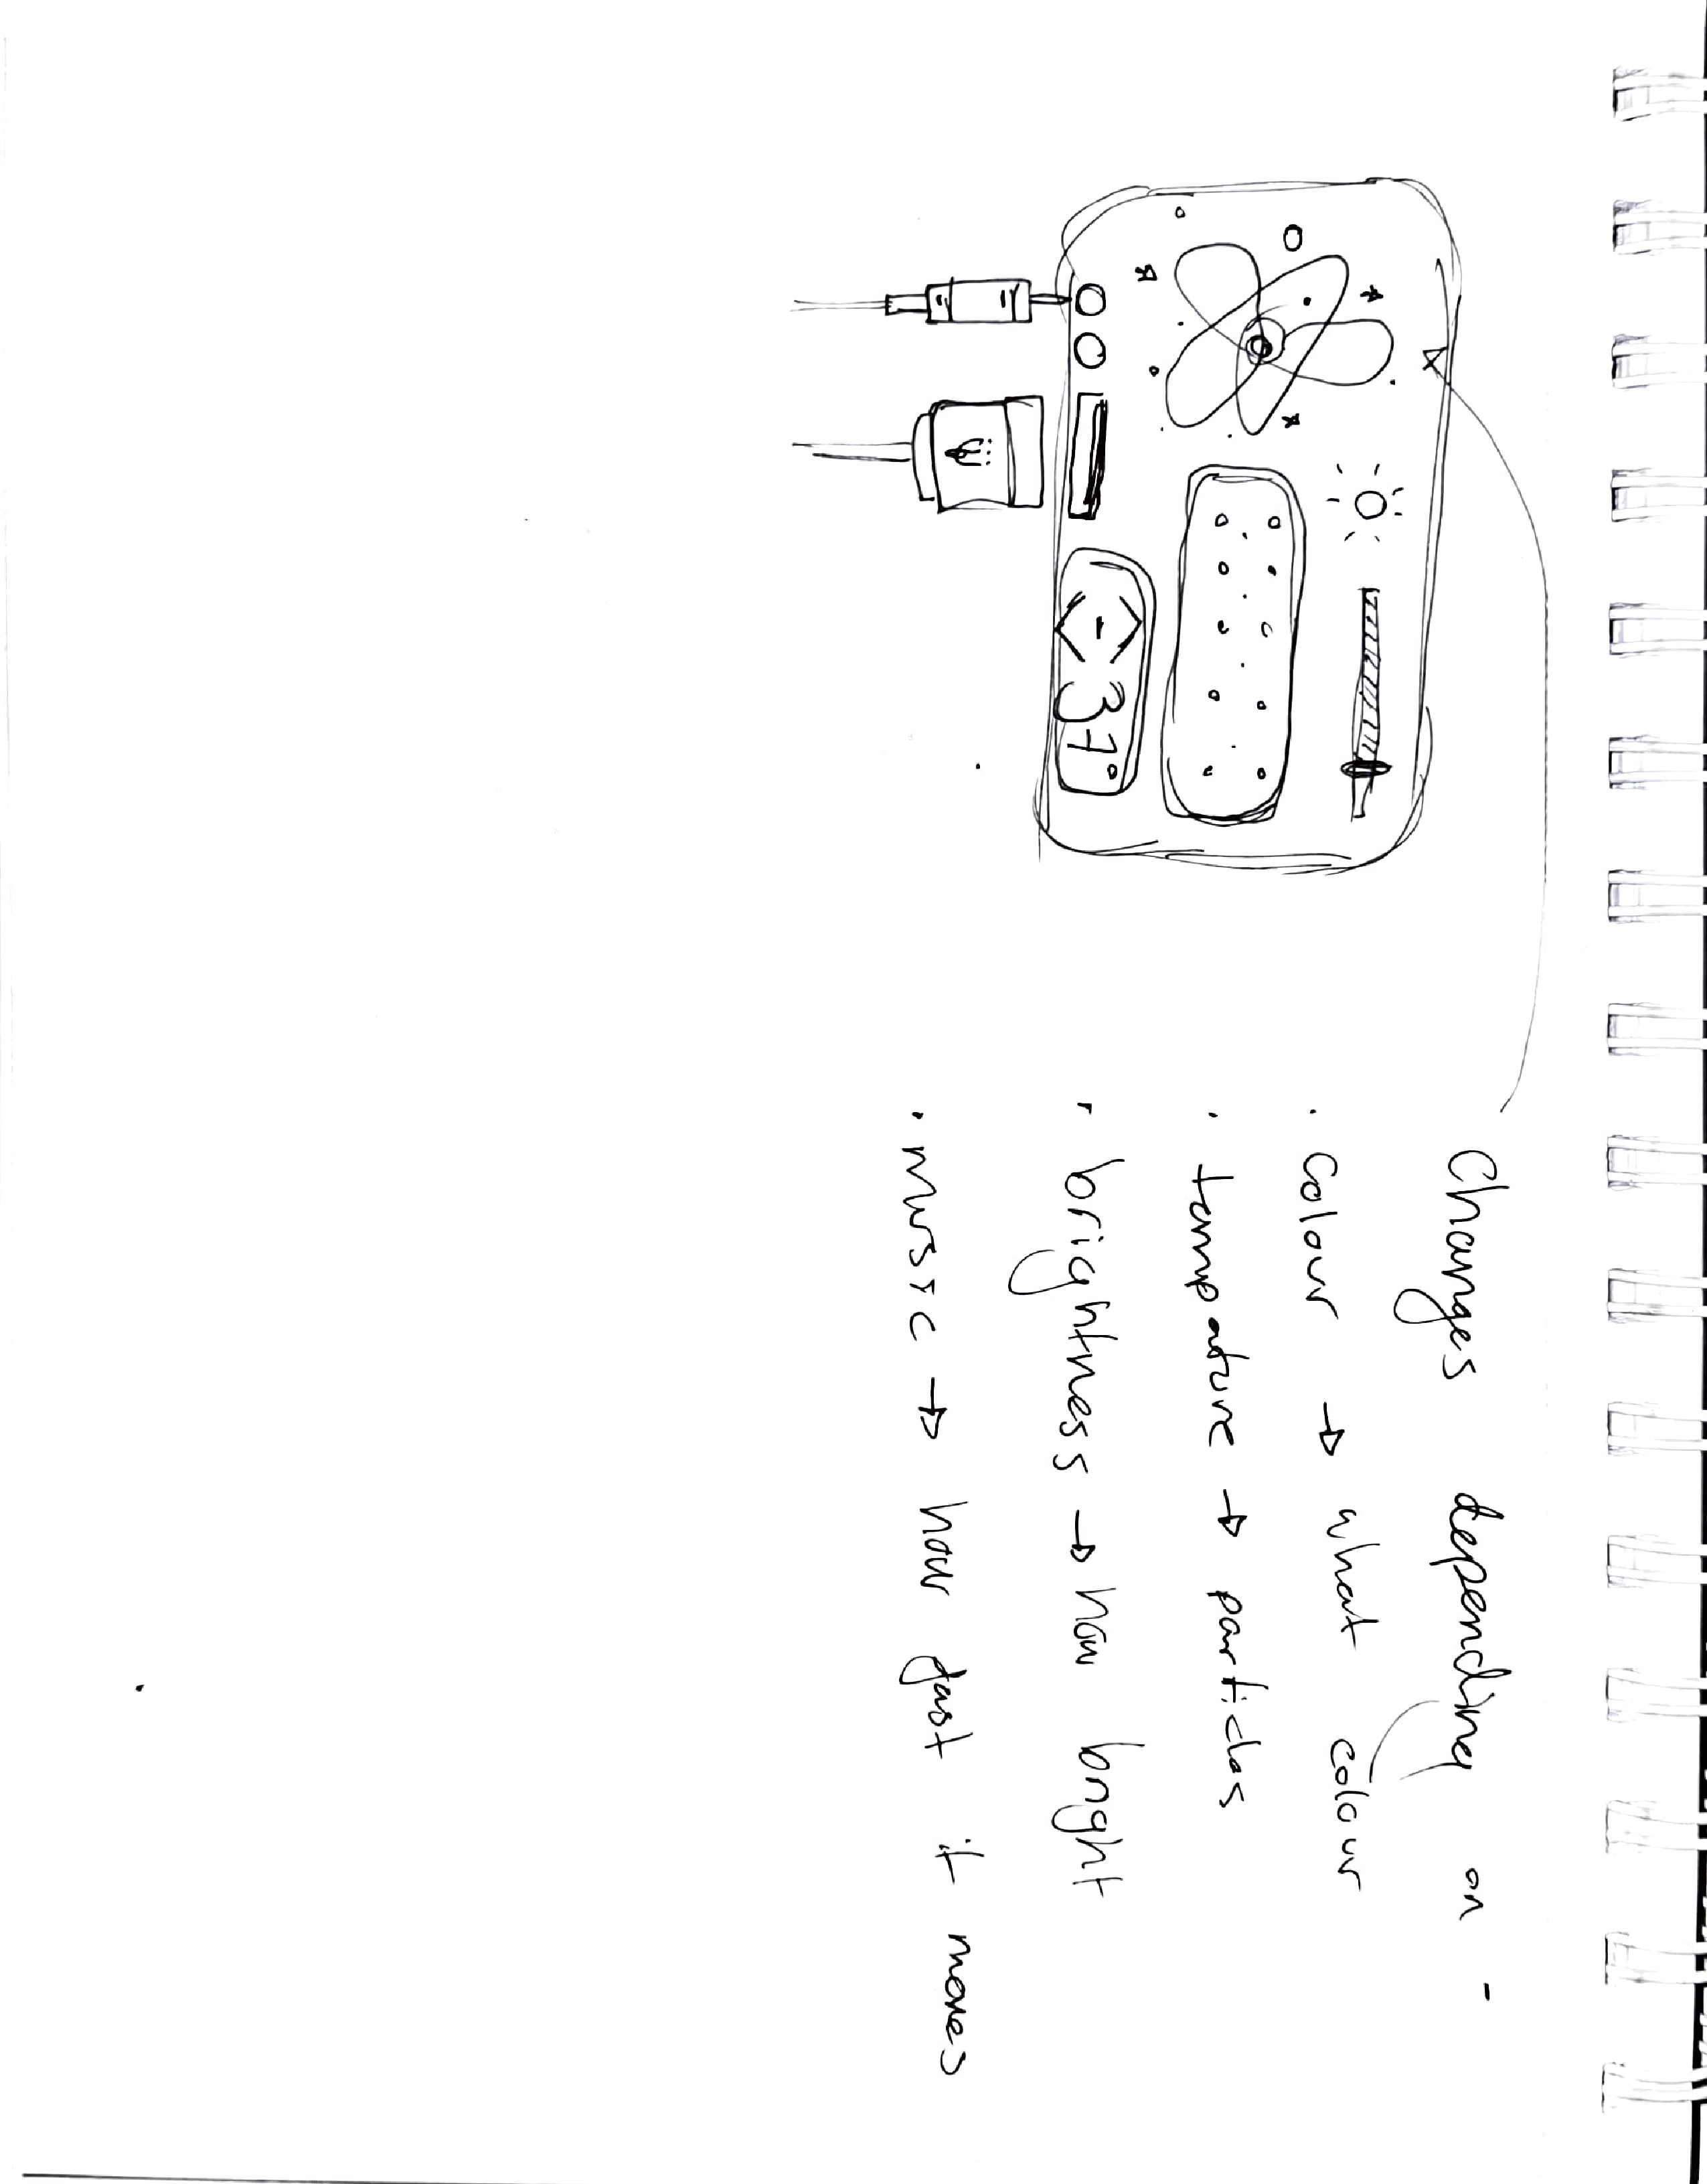 37°
Changes depending on -
· colour → what colour
· tempature → particles
· brightness → how bright
· music → how fast it moves